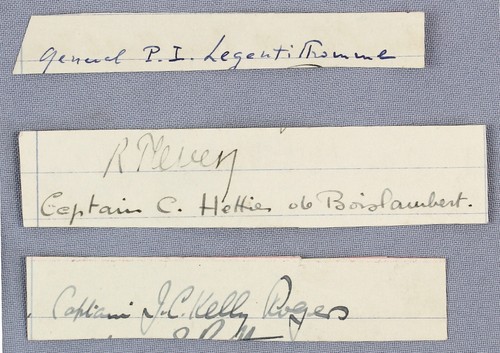 General P. I. Legentilhomme
R Pleven
Captain C. Hettier de Boislambert.
Captain J.C. Kelly Rogers